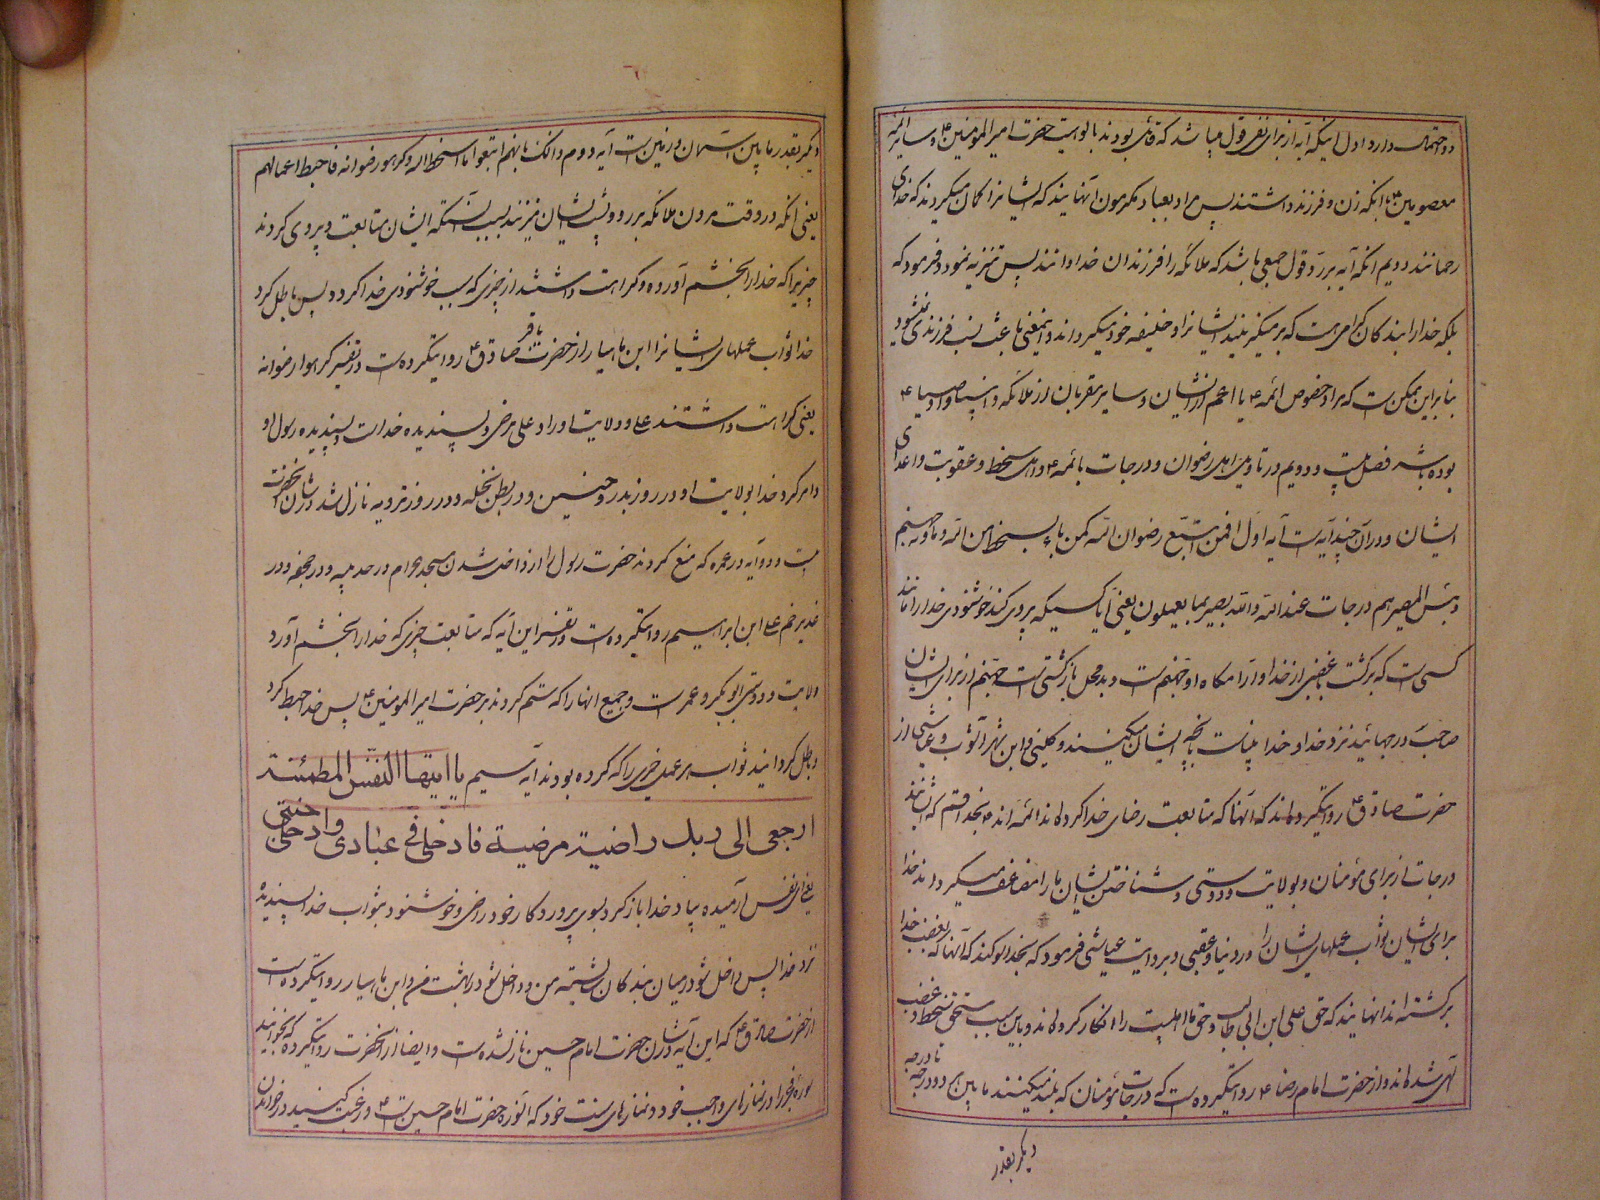 دو احتمال دارد اول اینکه آیه از برای نفی قول میباشد که قائل بودند بالوهیت حضرت امیر المومنین ع و سایر ائمه
معصومین ع با آنکه زن و فرزند داشتند پس مراد بعباد مکرمون آنهایند که ایشانرا گمان میکردند که خدای
رحمانند دویم آنکه آیه برد قول جمعی باشد که ملائکه را فرزندان خدا دانند پس تنزیه نمود و فرمود که
بلکه خدا را بندگان گرامی هست که بر میگزیند ایشانرا و خلیفه خود میگرداند و اینمعنی باعث نسب فرزندی نمیشود
بنا براین ممکن است که مراد خصوص ائمه ع یا اعم از ایشان و سایر مقربان از ملائکه و انبیا و اوصیا ع
بوده باشد فصل بیست و دویم در تاویل اهل رضوان و درجات بائمه ع و اهل سخط و عقوبت و اعدای
ایشان و در آن چند آیه است آیه اول افمن اتبع رضوان الله کمن باء بسخط من الله و ماویه جهنم
و بئس المصیر هم درجات عند الله والله بصیر بما یعملون یعنی آیا کسیکه پیروی کند خوشنودی خدا را مانند
کسی است که برگشت بغضبی از خدا و آرامگاه او جهنم است و بد محل بازگشتی است جهنم از برای ایشان
صاحب درجهایند نزد خدا و خدا بیناست بآنچه ایشان میکنند و کلینی و ابن شهر آشوب و عیاشی از
حضرت صادق ع روایتکرده‌اند که آنها که متابعت رضای خدا کرده‌اند ائمه‌اند ع بخدا قسم که ایشانند
درجات از برای مؤمنان و بولایت و دوستی و شناختن ایشان ما را مضاعف میگرداند خدا
برای ایشان ثواب عملهای ایشان را در دنیا و عقبی و بروایت عیاشی فرمود که بخدا سوگند که آنها که بغضب خدا
برگشته‌اند آنهایند که حق علی ابن ابی طالب و حق ما اهلبیت را انکار کرده‌اند و باین سبب مستحق سخط و غضب
الهی شده‌اند و از حضرت امام رضا ع روایتکرده است که درجات مؤمنان که بلند میکنند ما بین هر دو درجه تا درجه
دیگر بقدر
دیگر بقدر ما بین آسمان و زمین است آیه دوم ذالک بانهم اتبعوا ما اسخط الله و کرهوا رضوانه فاحبط اعمالهم
یعنی آنکه در وقت مردن ملائکه بر رو و پشت ایشان میزنند بسبب آنستکه ایشان متابعت و پیروی کردند
چیزیرا که خدا را بخشم آورده و کراهت داشتند از چیزی که سبب خوشنودی خدا گردد پس باطل کرد
خدا ثواب عملهای ایشانرا ابن ماهیار از حضرت باقر و صادق ع روایتکرده است در تفسیر کرهوا رضوانه
یعنی کراهت داشتند علی و ولایت او را و علی مرضی و پسندیده خداست و پسندیده رسول او
و امر کرد خدا بولایت او در روز بدر و حنین و در بطن نخله و در روز ترویه نازل شد در شان آنحضرت
بیست و دو آیه در عمره که منع کردند حضرت رسول را از داخل شدن مسجد حرام در حدیبیه و در جحفه و در
غدیر خم علی ابن ابراهیم روایتکرده است در تفسیر این آیه که متابعت چیزی که خدا را بخشم آورد
ولایت و دوستی ابوبکر و عمر است و جمیع آنها را که ستم کردند بر حضرت امیر المومنین ع پس خدا حبط کرد
و باطل گردانید ثواب هر عمل خیری را که کرده بودند آیه سیم یا ایتها النفس المطمئنة
ارجعی الی ربک راضیة مرضیة فادخلی فی عبادی وادخلی جنتی
یعنی ای نفس آرمیده بیاد خدا باز گرد بسوی پروردگار خود راضی و خوشنود بثواب خدا پسندیده
نزد خدا پس داخل شو در میان بندگان شایسته من و داخل شو در بهشت من و ابن ماهیار روایتکرده است
از حضرت صادق ع که این آیه در شان حضرت امام حسین نازل شده است و ایضا از آنحضرت روایتکرده که بخوانید
سوره فجر را در نمازهای واجب خود و نمازهای سنت خود که آن سوره حضرت امام حسین است ع و رغبت کنید در خواندن